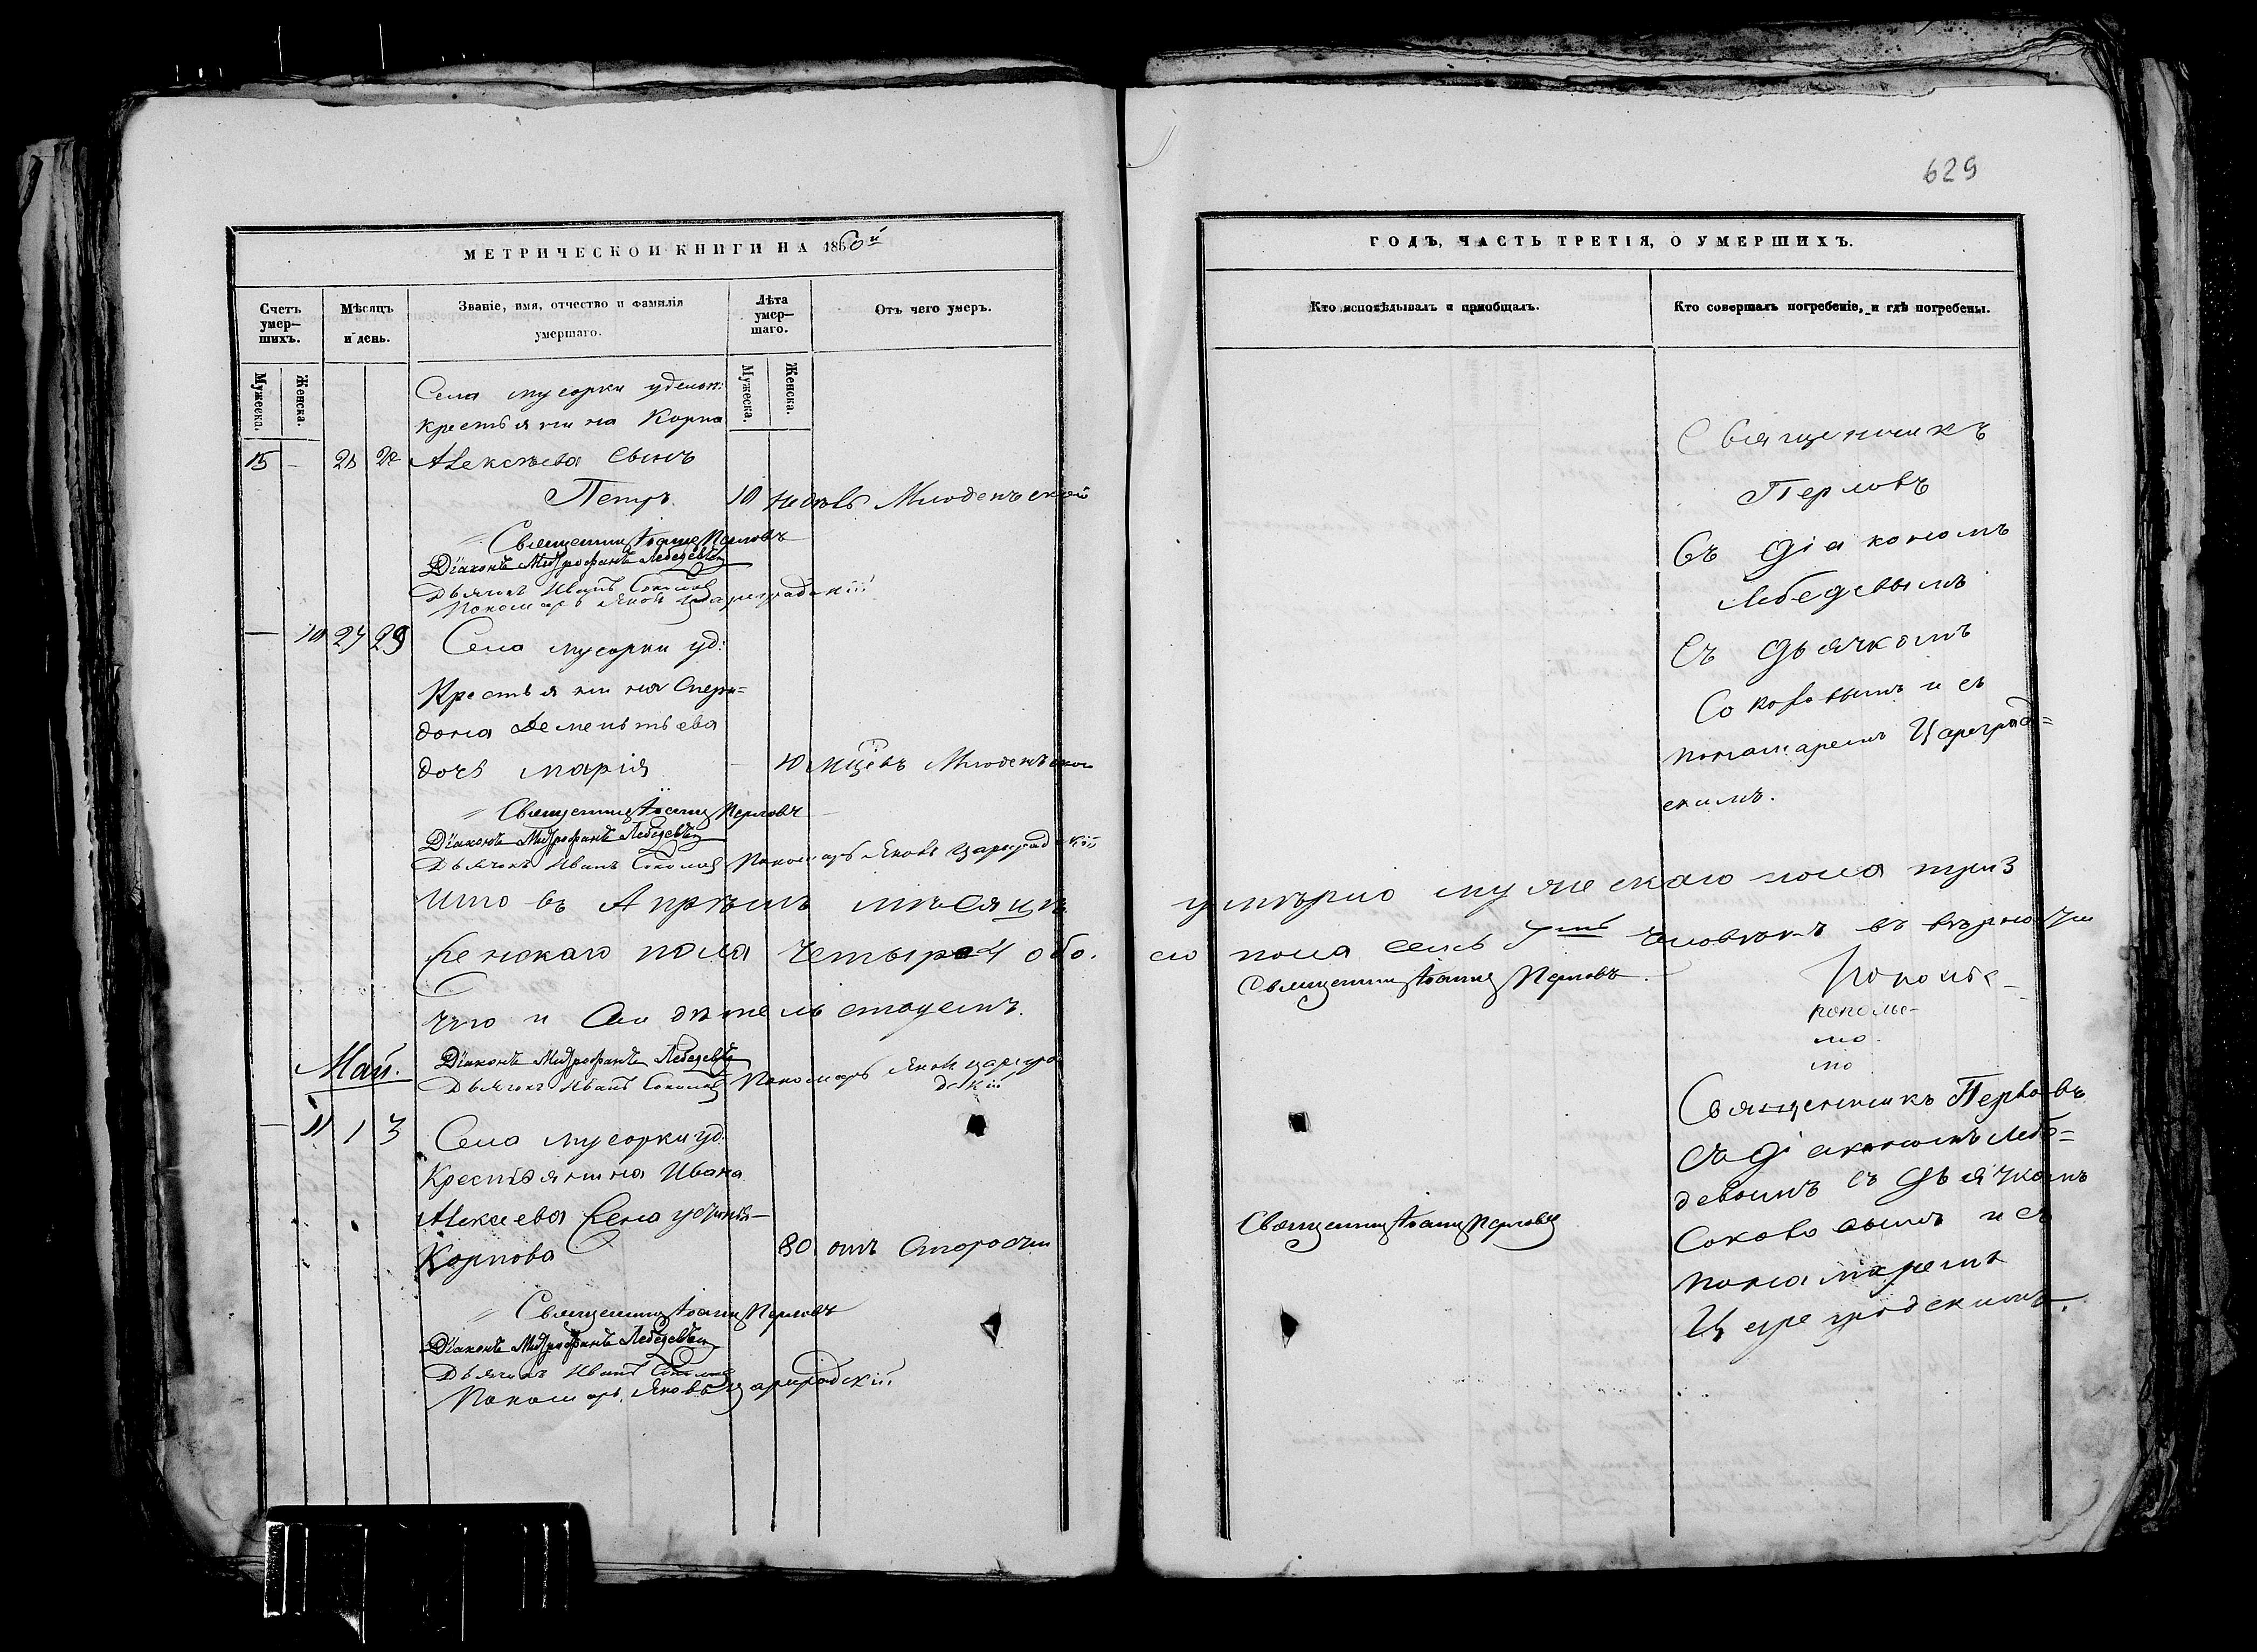 629
МЕТРИЧЕСКОЙ КНИГИ НА 1860й
Счетъ умер-шихъ.
Мѣсяцъ и день.
Званіе, имя, отчество и фамилія умершаго.
Лѣта умер-шаго.
Отъ чего умеръ.
Мужеска.
Женска.
Мужеска.
Женска.
Села Мусорки удельн:
крестьянина Корпа
15 -
Алексѣева сынъ
Петръ. 10 недѣль Младенческой
Священникъ Іоаннъ Перловъ
Діаконъ Митрофанъ Лебедевъ
Дьячекъ Иванъ Соколовъ
Пономарь Яковъ Цареградскій
— 10 27 29 Села Мусорки уд:
Крестьянина Спери=
дона Дементьева
дочь Марія 10 мцевъ Младенческой
Священникъ Іоаннъ Перловъ
Діаконъ Митрофанъ Лебедевъ
Дьячекъ Иванъ Соколовъ Пономарь Яковъ Цареградскій
Что въ Апрѣлѣ мѣсяцѣ
женскаго пола четыре 4 обо.
что и свидѣтельствуемъ.
Май.
Діаконъ Митрофанъ Лебедевъ
Дьячекъ Иванъ Соколовъ Пономарь Яковъ Цареград
скій
— 11 1 3 Села Мусорки уд.
Крестьянина Ивана
Алексеева жена Устинья
Карпова 80 отъ старости
Священникъ Іоаннъ Перловъ
Діаконъ Митрофанъ Лебедевъ
Дьячекъ Иванъ Соколовъ
Пономарь Яковъ Цареградскій
ГОДЪ, ЧАСТЬ ТРЕТІЯ, О УМЕРШИХЪ.
Кто исповѣдывалъ и пріобщалъ.
Кто совершалъ погребеніе, и гдѣ погребены.
Священникъ
Перловъ
Съ Діакономъ
Лебедевымъ
Съ Дьячкомъ
Соколовымъ и съ
пономаремъ Цареград=
скимъ.
умерло мужескаго пола три 3
его пола семь 7мь человѣкъ въ вѣрности
Священникъ Іоаннъ Перловъ.
Священникъ Перловъ
съ Діакономъ Лебе=
девымъ съ Дьячкомъ
Соколовымъ и съ
Священникъ Іоаннъ Перловъ
пономаремъ
Цареградскимъ.